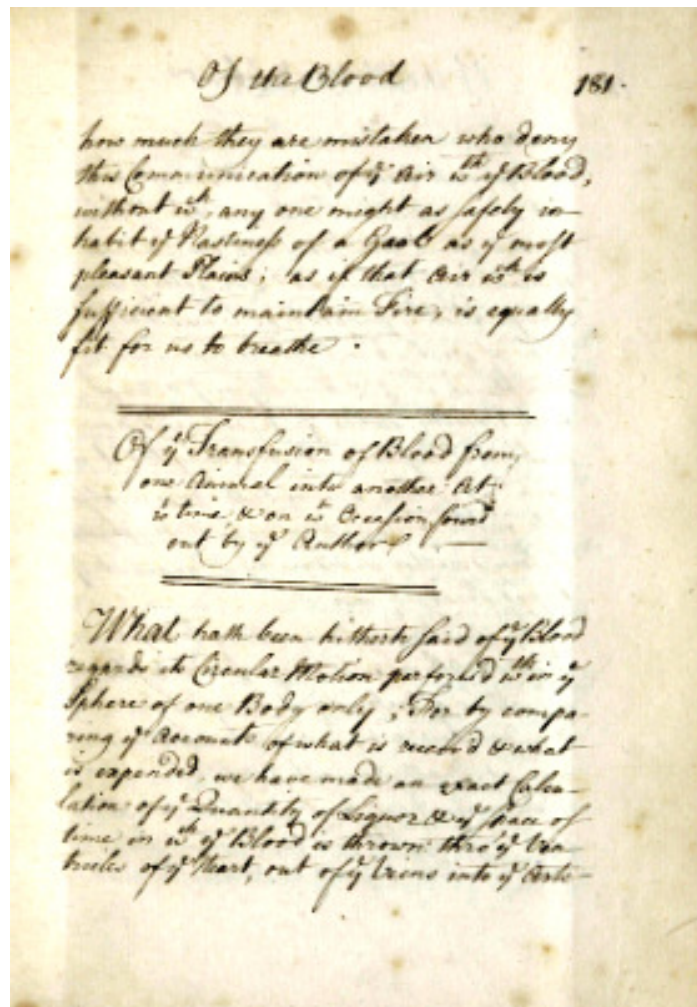 Of the Blood 181.
how much they are mistaken who deny
this Communication of yᵉ Air wᵗʰ yᵉ Blood,
without wᶜʰ, any one might as safely in-
habit yᵉ Nastiness of a Gaol as yᵉ most
pleasant Plains; as if that Air wᶜʰ is
sufficient to maintain Fire, is equally
fit for us to breathe.
Of yᵉ Transfusion of Blood from
one Animal into another At
wᵗ time, & on wᵗ Occasion found
out by yᵉ Author
What hath been hitherto said of yᵉ Blood
regards its Circular Motion perform'd wᵗʰin yᵉ
Sphere of one Body only; For by compa-
ring yᵉ Accounts of what is receiv'd & what
is expended, we have made an exact Calcu-
lation of yᵉ Quantity of Liquor & yᵉ space of
time in wᶜʰ yᵉ Blood is thrown thro' yᵉ Ven
tricles of yᵉ Heart, out of yᵉ Veins into yᵉ Arte-